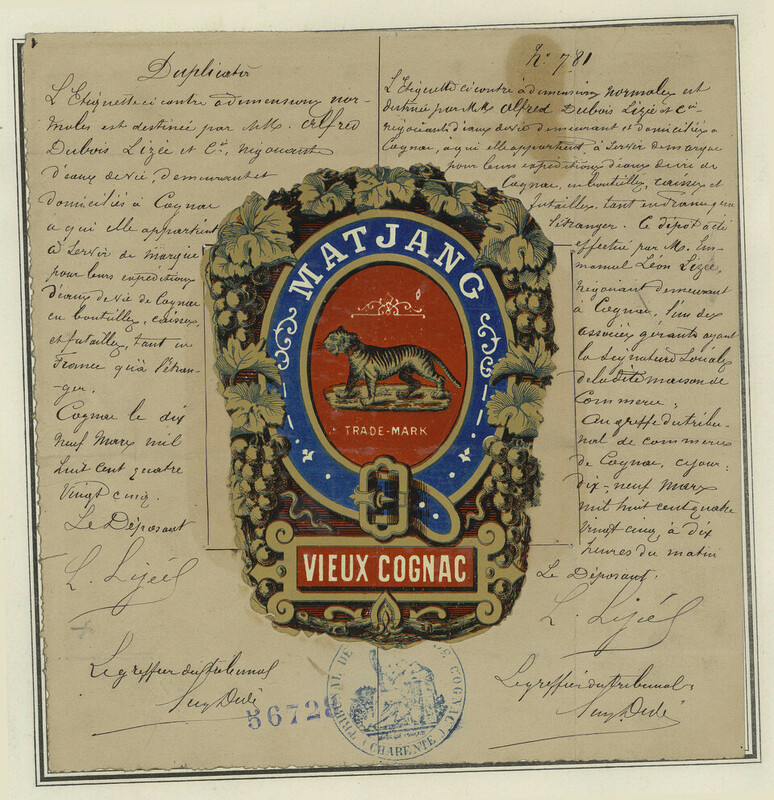 Duplicata
L'Etiquette ci contre à dimensions nor-
males est destinée par MM. Alfred
Dubois Lizée et Cie, négociants
d'eaux de vie, demeurant et
domiciliés à Cognac
à qui elle appartient
à servir de marque
pour leurs expéditions
d'eaux de vie de Cognac
en bouteilles, caisses,
et futailles, tant en
France qu'à l'étran-
ger.
Cognac le dix
neuf Mars mil
huit cent quatre
vingt cinq.
Le Déposant
L. Lizée
Le greffier du tribunal
No 781
L'Etiquette ci contre à dimensions normales est
destinée par MM. Alfred Dubois Lizée et Cie
négociants d'eaux de vie demeurant et domiciliés à
Cognac, à qui elle appartient à servir de marque
pour leurs expéditions d'eaux de vie de
Cognac, en bouteilles, caisses et
futailles, tant en France qu'à
l'étranger. Ce dépôt a été
effectué par M. Em-
manuel Léon Lizée,
négociant demeurant
à Cognac, l'un des
associés gérants ayant
la signature sociale
de la dite maison de
Commerce;
Au greffe du tribu-
nal de commerce
de Cognac, ce jour:
dix-neuf Mars
mil huit cent quatre
vingt cinq à dix
heures du matin
Le Déposant.
L. Lizée
Le greffier du tribunal
MATJANG
TRADE-MARK
VIEUX COGNAC
56728
TRIBUNAL DE COMMERCE DE COGNAC
(CHARENTE)